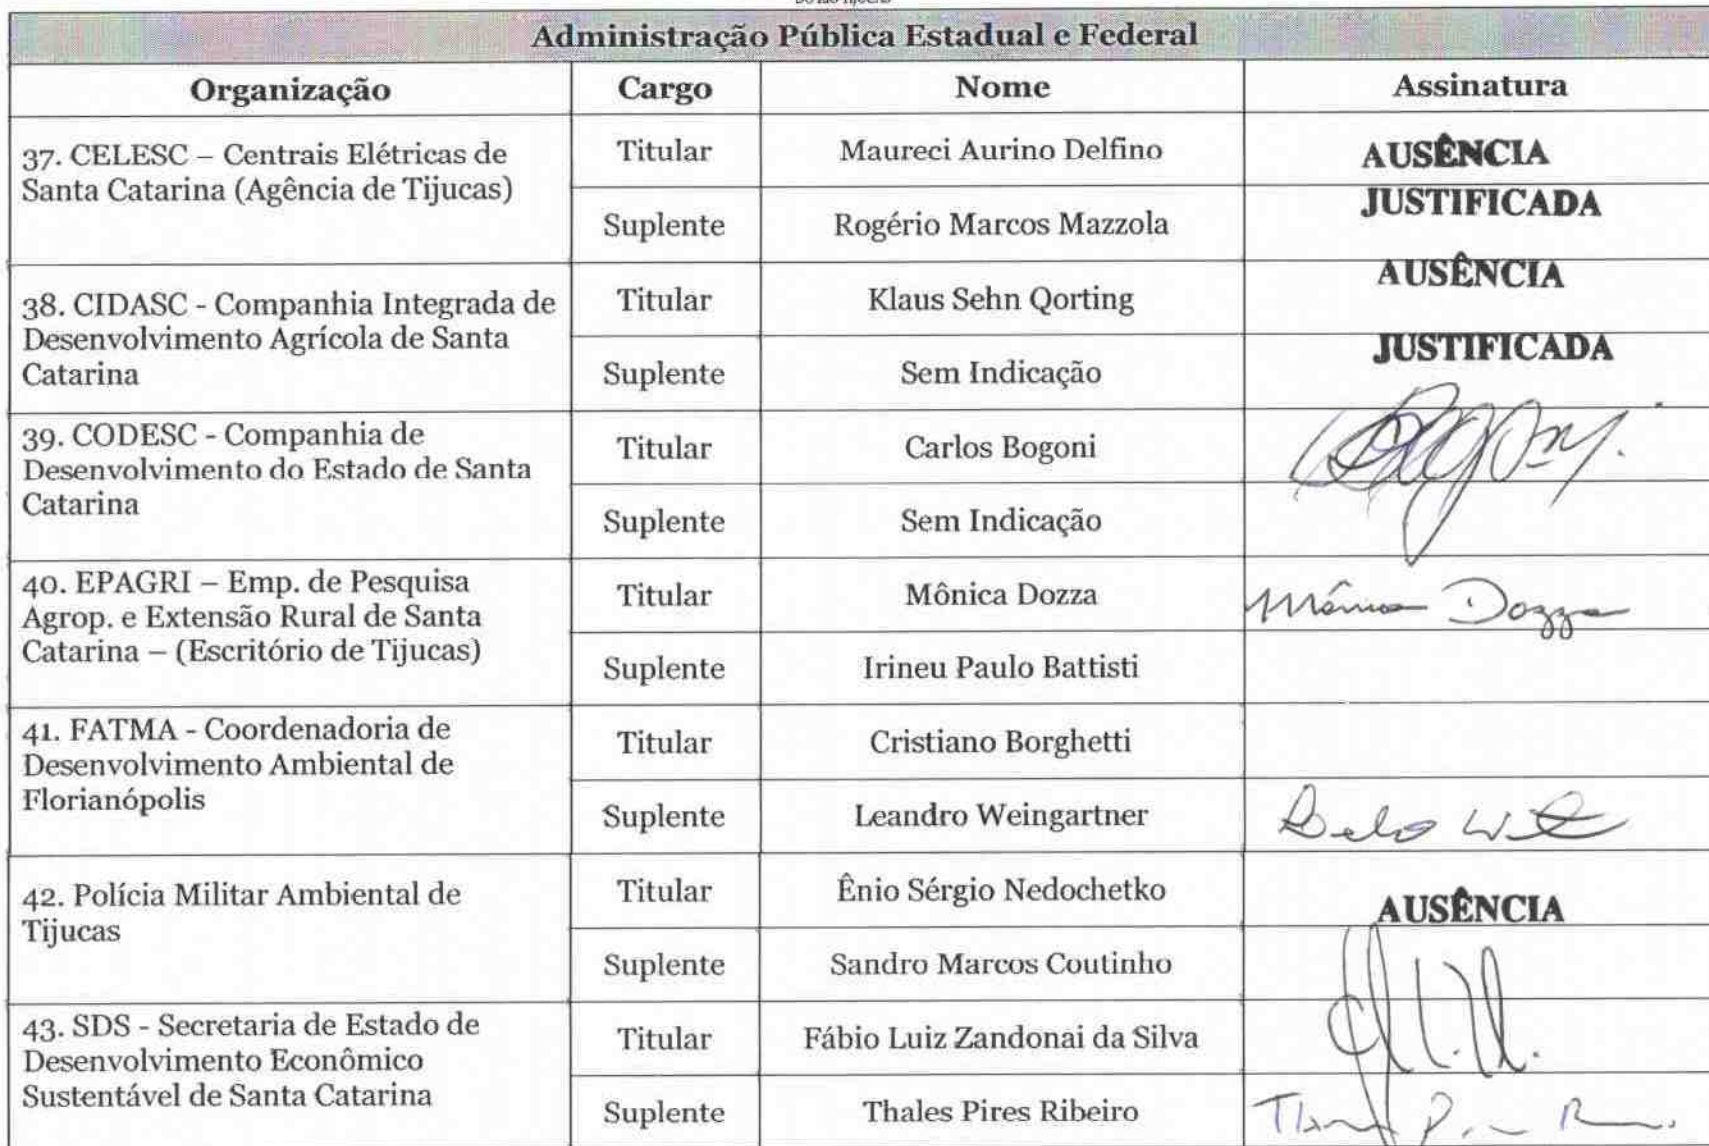 Administração Pública Estadual e Federal
Organização Cargo Nome Assinatura
37. CELESC – Centrais Elétricas de
Santa Catarina (Agência de Tijucas)
Titular Maureci Aurino Delfino AUSÊNCIA
JUSTIFICADA
Suplente Rogério Marcos Mazzola
38. CIDASC - Companhia Integrada de
Desenvolvimento Agrícola de Santa
Catarina
Titular Klaus Sehn Qorting AUSÊNCIA
Suplente Sem Indicação JUSTIFICADA
39. CODESC - Companhia de
Desenvolvimento do Estado de Santa
Catarina
Titular Carlos Bogoni
Suplente Sem Indicação
40. EPAGRI – Emp. de Pesquisa
Agrop. e Extensão Rural de Santa
Catarina – (Escritório de Tijucas)
Titular Mônica Dozza Mônica Dozza
Suplente Irineu Paulo Battisti
41. FATMA - Coordenadoria de
Desenvolvimento Ambiental de
Florianópolis
Titular Cristiano Borghetti
Suplente Leandro Weingartner
42. Polícia Militar Ambiental de
Tijucas
Titular Ênio Sérgio Nedochetko AUSÊNCIA
Suplente Sandro Marcos Coutinho
43. SDS - Secretaria de Estado de
Desenvolvimento Econômico
Sustentável de Santa Catarina
Titular Fábio Luiz Zandonai da Silva
Suplente Thales Pires Ribeiro